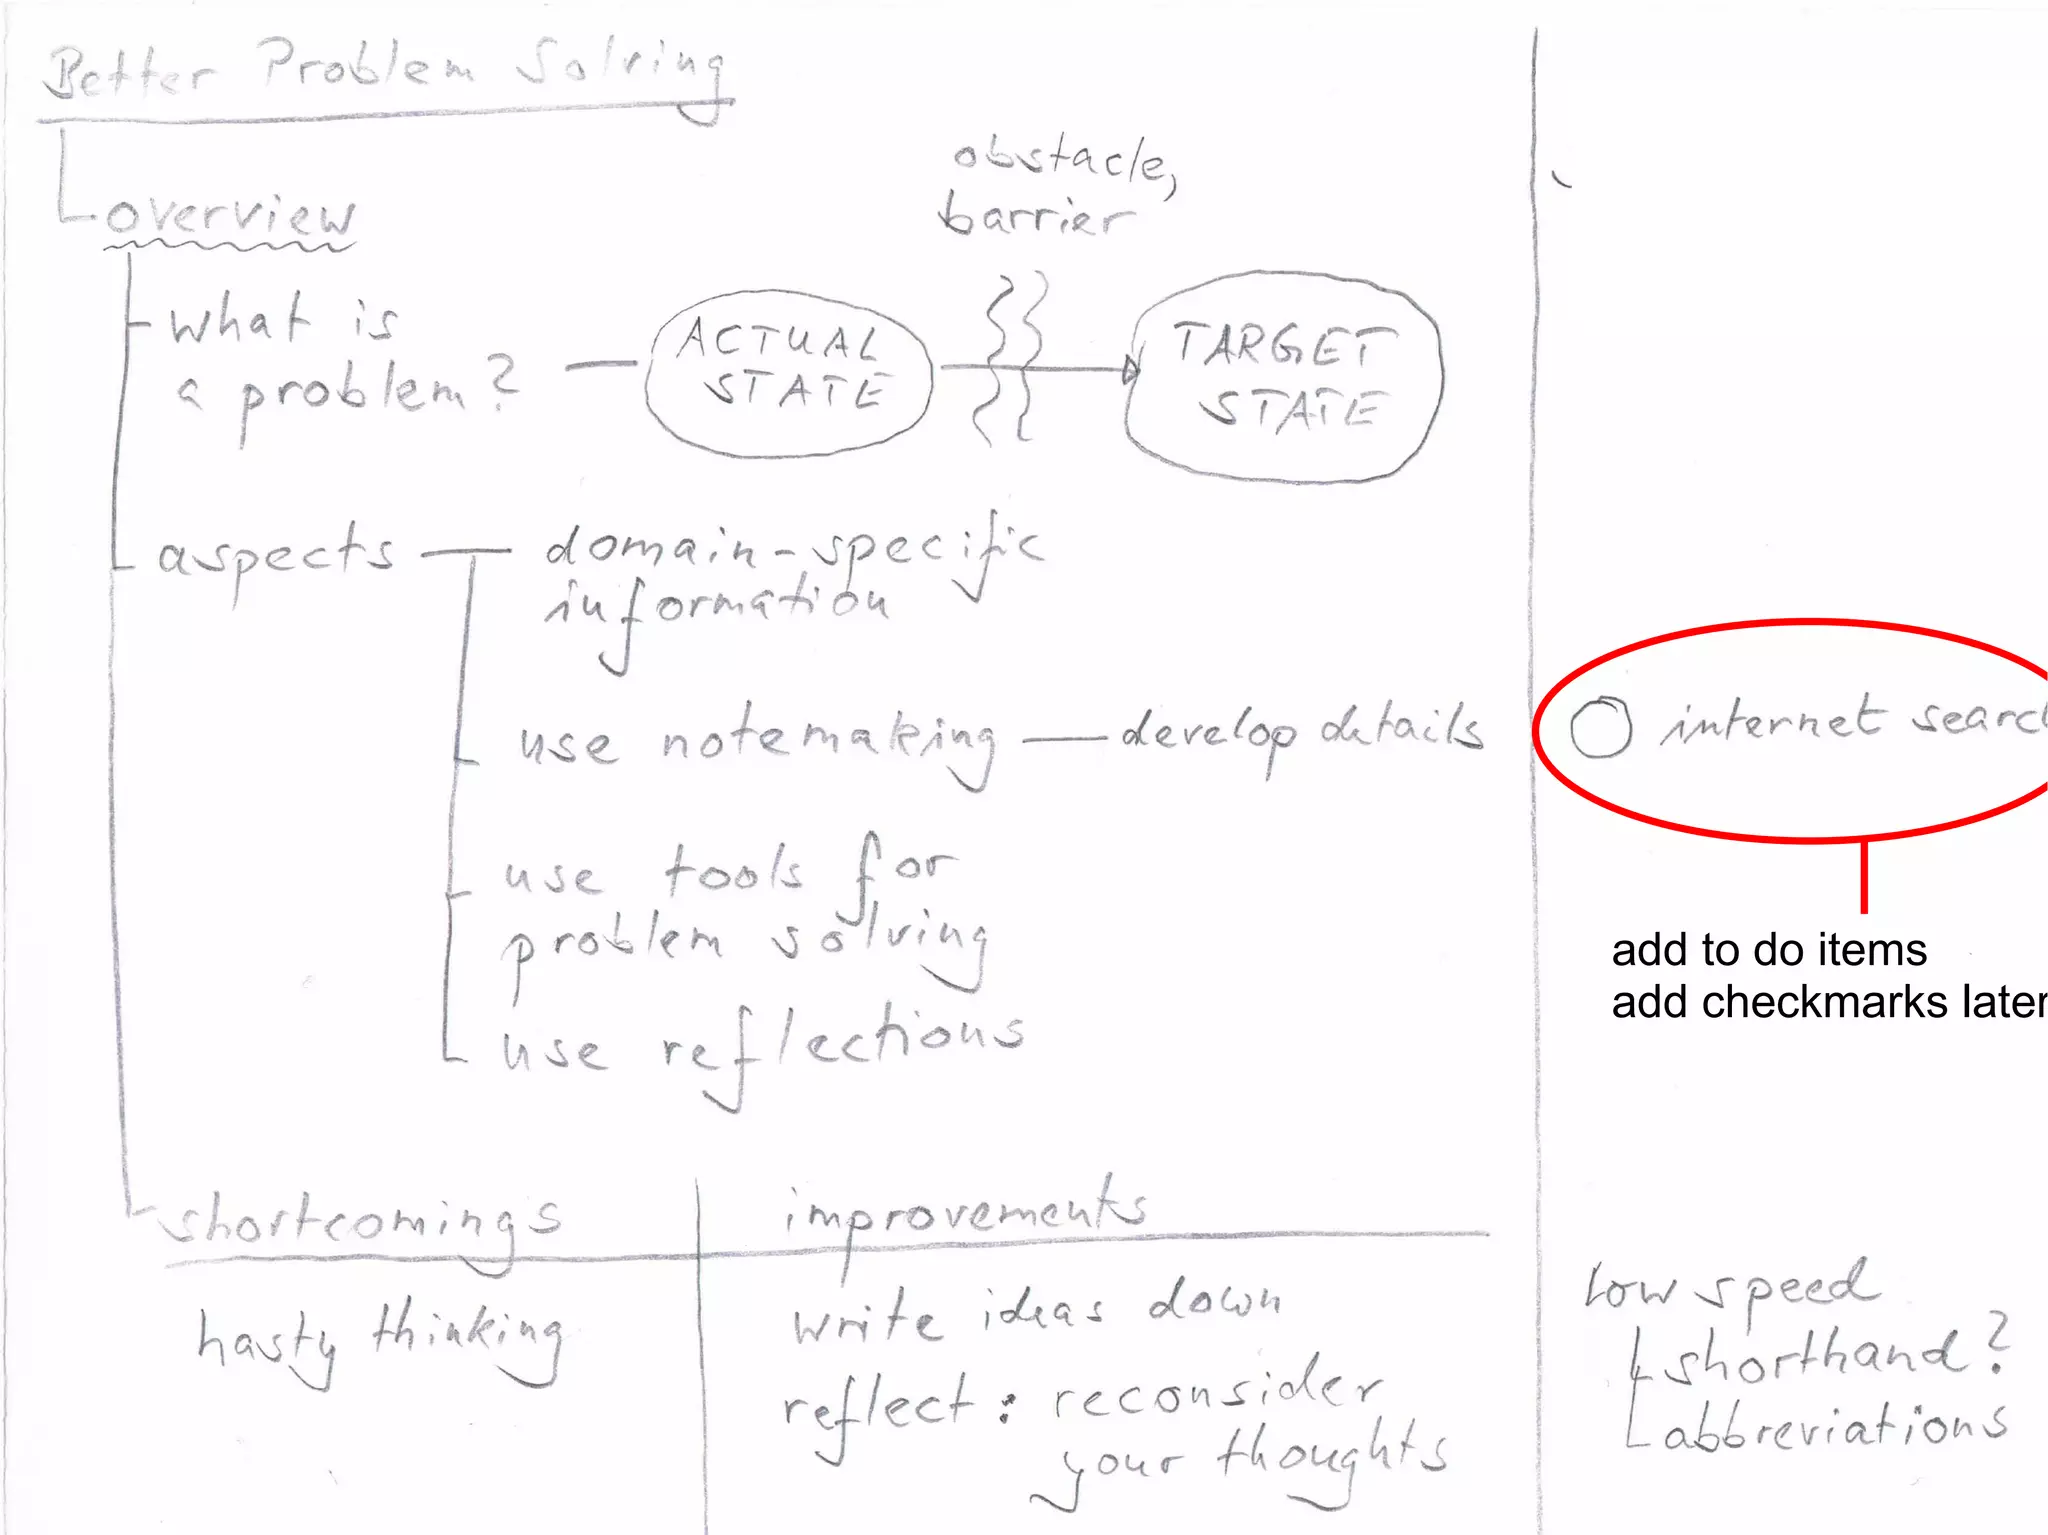 Better Problem Solving
overview
obstacle,
barrier
what is
a problem?
ACTUAL
STATE
TARGET
STATE
aspects
domain-specific
information
use notemaking
develop details
internet searc
use tools for
problem solving
add to do items
add checkmarks later
use reflections
shortcomings
improvements
hasty thinking
write ideas down
reflect: reconsider
your thoughts
low speed
shorthand?
abbreviations